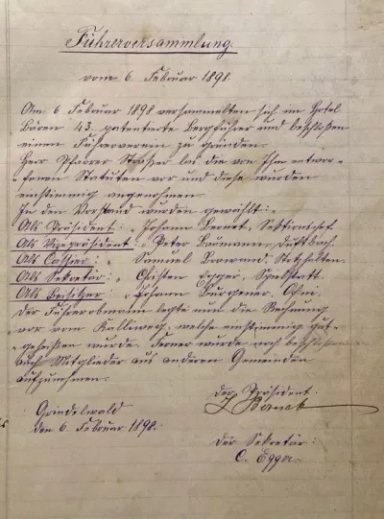 Führerversammlung.
vom 6. Februar 1898.
Am 6. Februar 1898 versammelten sich im Hotel
Bären 43. patentierte Bergführer und beschloßen
einen Führerverein zu gründen.
Herr Pfarrer Straßer las die von Ihm entwor-
fenen Statuten vor und diese wurden
einstimmig angenommen.
In den Vorstand wurden gewählt:
Als Präsident: Johann Bernet,
Als Vizepräsident: Peter Baumann,
Als Cassier: Samuel Brawand,
Als Sekretär: Christen Egger, Spielstatt.
Als Beisitzer: Johann Burgener,
Der Führerobmann legte nun die Rechnung
vor vom Kalliweg, welche einstimmig gut-
geheißen wurde. Ferner wurde noch beschloßen
auch Mitglieder aus anderen Gemeinden
aufzunehmen.
Der Präsident:
J. Bernet
Grindelwald
den 6. Februar 1898.
Der Sekretär:
C. Egger.